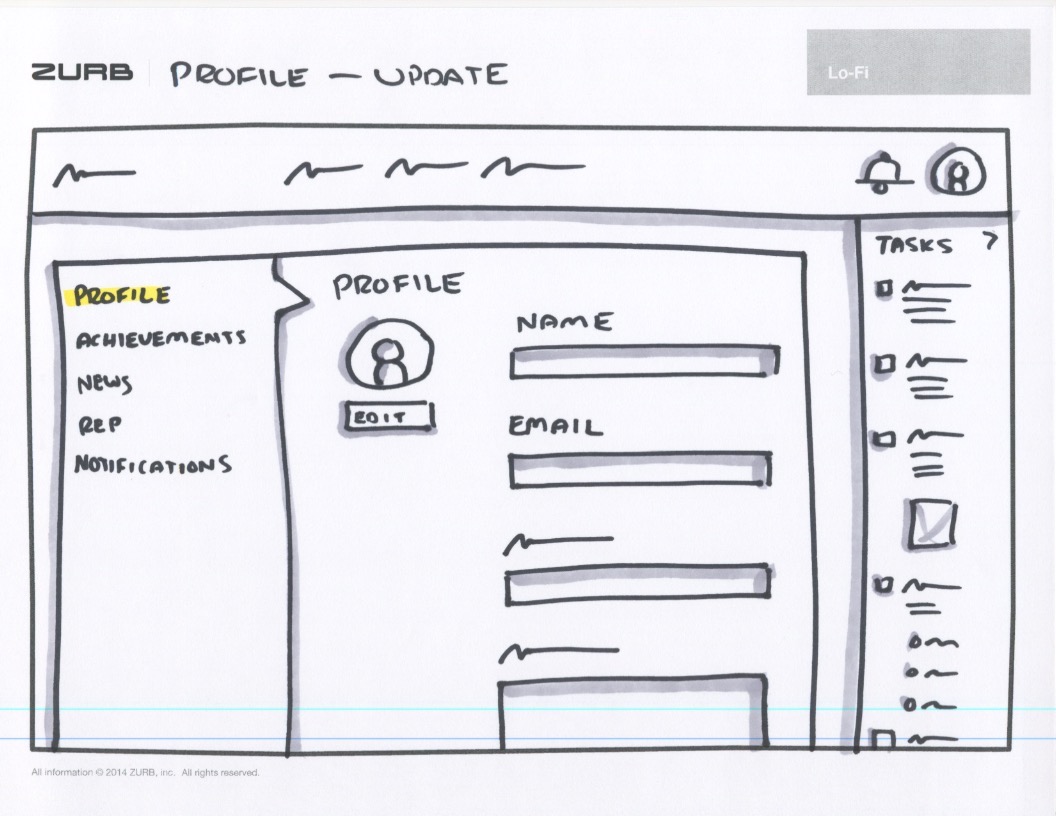 ZURB PROFILE — UPDATE
Lo-Fi
TASKS >
PROFILE
ACHIEVEMENTS
NEWS
REP
NOTIFICATIONS
PROFILE
EDIT
NAME
EMAIL
All information © 2014 ZURB, inc. All rights reserved.